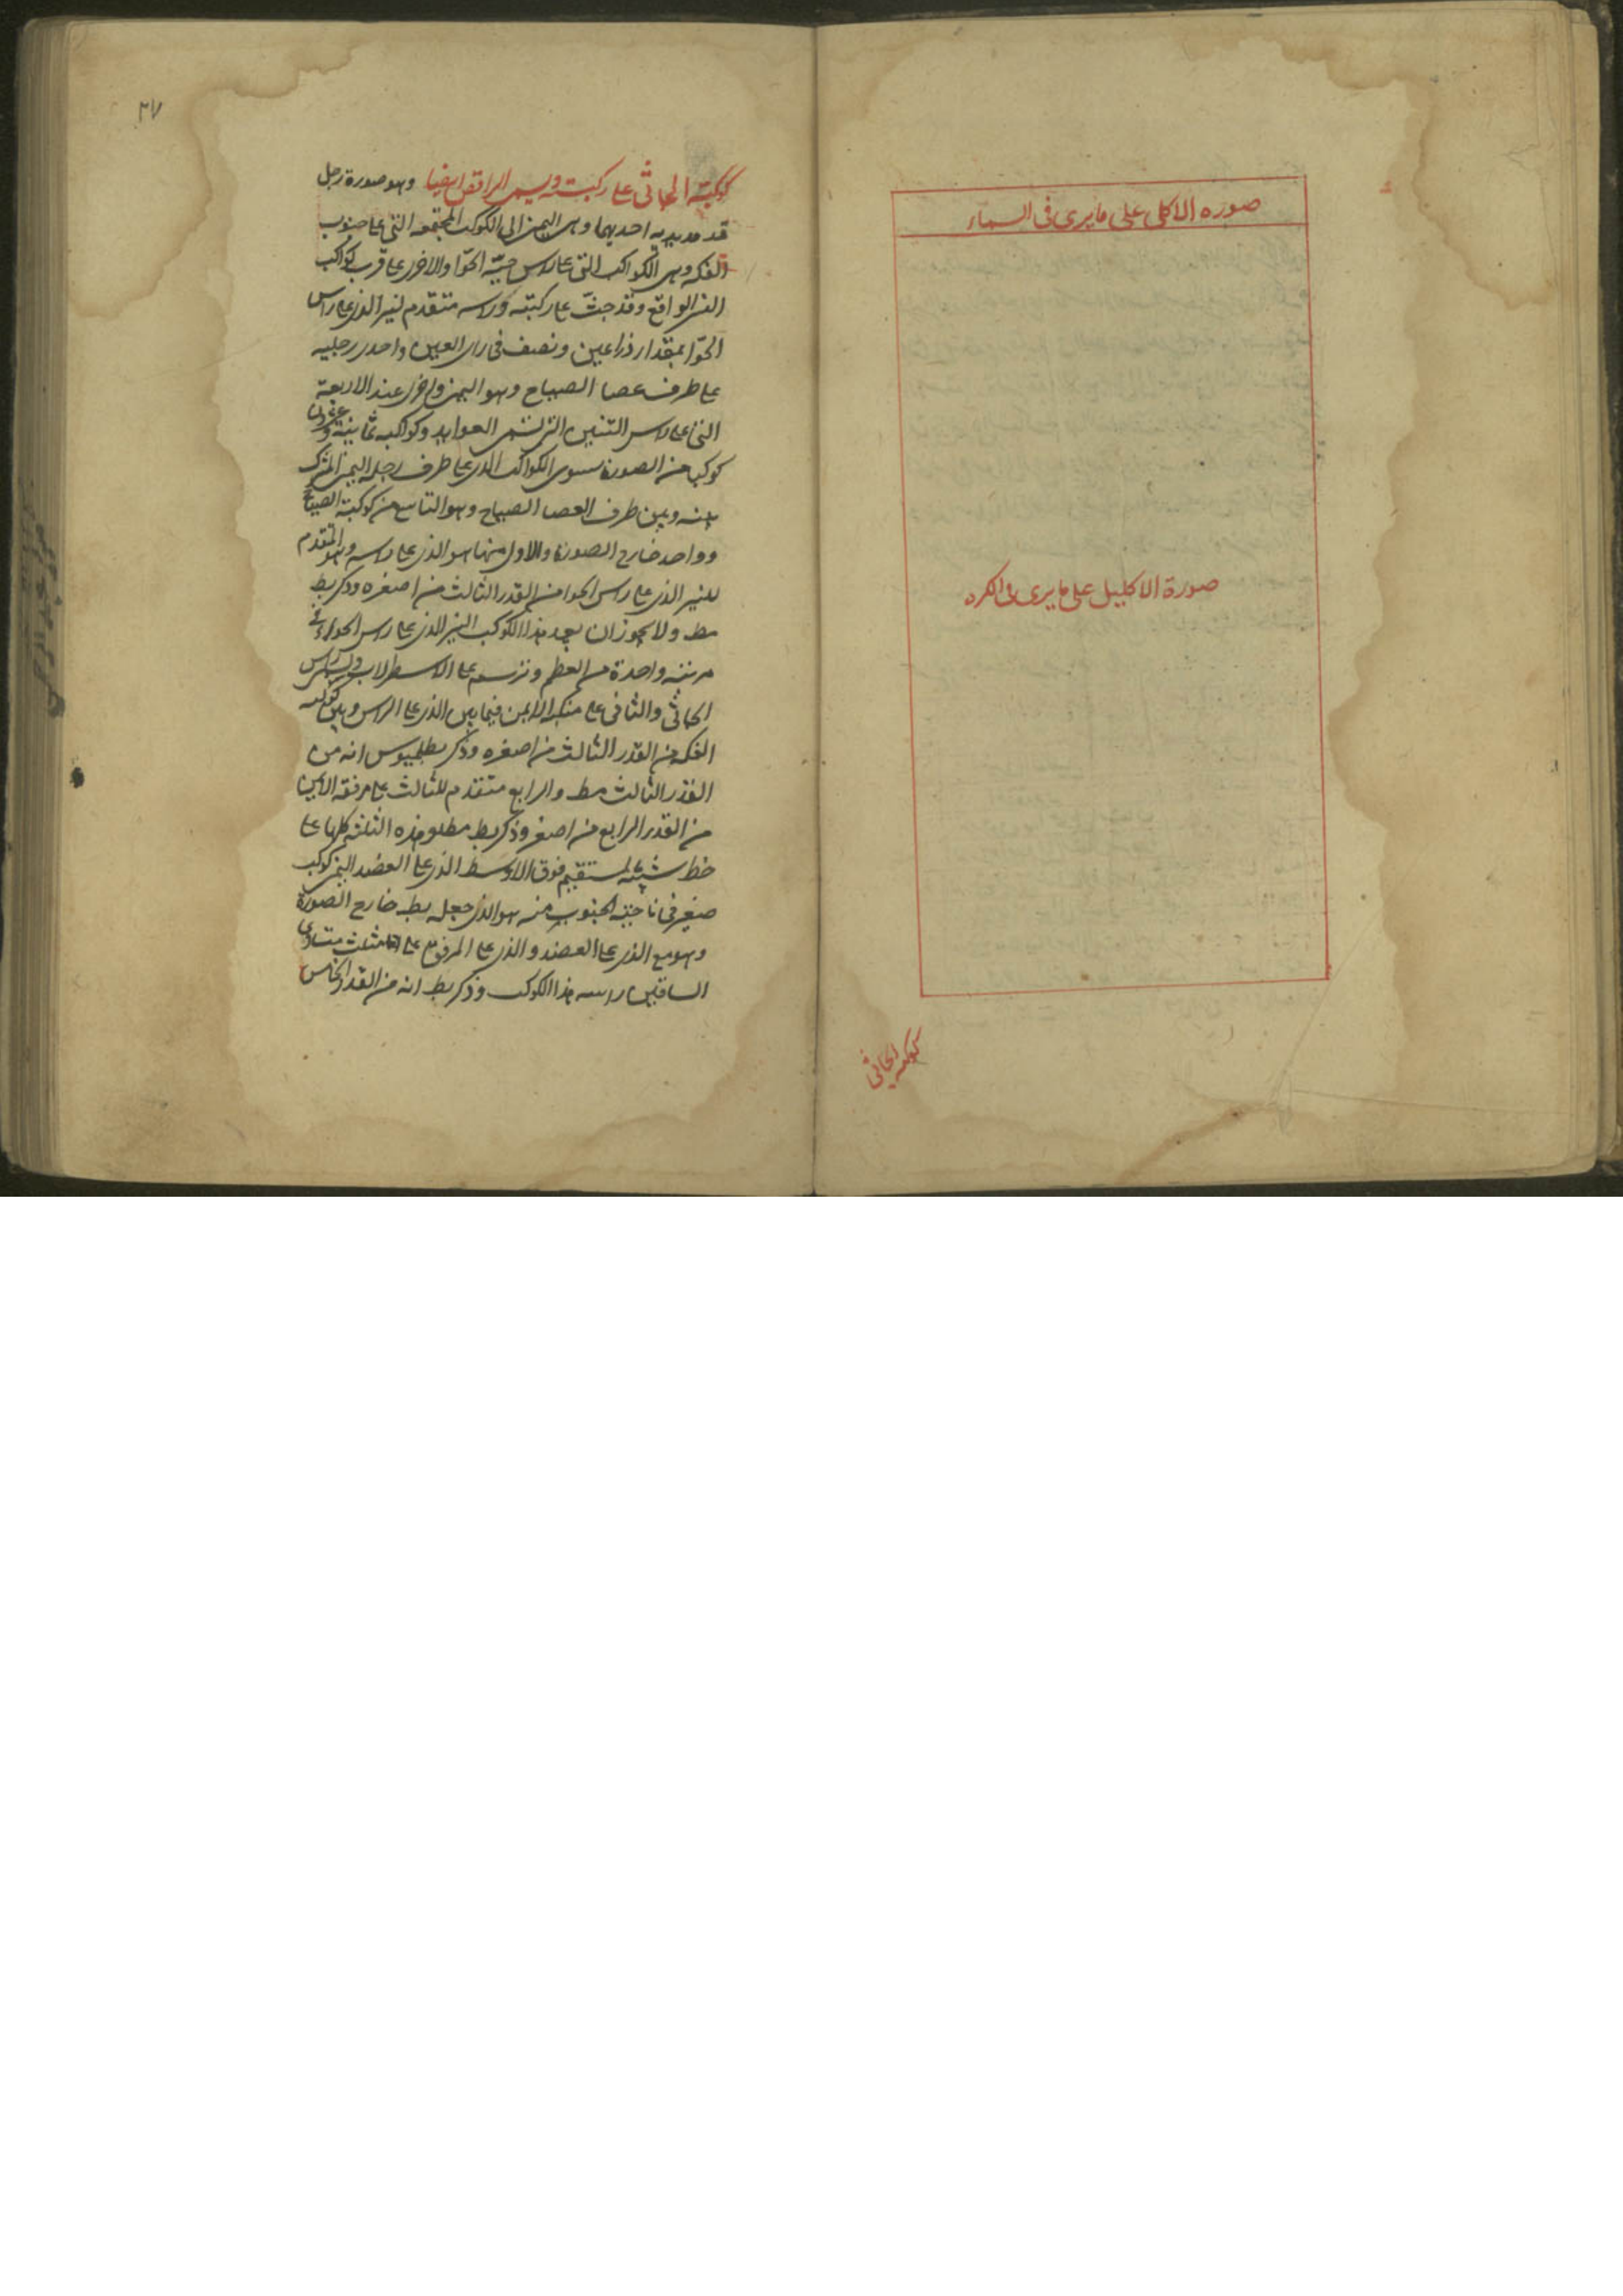 صوره الاكلى على مايرى فى السماء
صورة الاكليل على مايرى فى الكره
كوكبه الجاثى
٢٧
كوكبة الجاثى على ركبته ويسمى الراقص ايضا وهو صورة رجل
قد مد يديه احديهما وهى اليمنى الى الكوكب المجتمعه التى على جنوب
الفكه وهى الكواكب التى على راس حيّة الحوّا والاخرى على قرب كواكب
النسر الواقع وقد جثى على ركبته وراسه متقدم لنير الذى على راس
الحوّا بمقدار ذراعين ونصف فى راى العين واحدى رجليه
على طرف عصا الصياح وهو اليمنى والاخرى عند الاربعة
التى على راس التنين التى تسمى العوايد وكواكبه ثمانية وعشرون
كوكبا من الصورة سوى الكواكب الذى على طرف رجله اليمنى المشترك
بينه وبين طرف العصا الصياح وهو التاسع من كوكبة الصياح
وواحد خارج الصورة والاول منها هو الذى على راسه وهو المتقدم
للنير الذى على راس الحوا من القدر الثالث من اصغره وذكر بط
مط ولا يجوز ان يعد هذا الكوكب النير الذى على راس الحواء فى
مرتبه واحدة من العظم وترسم على الاسطرلاب راس
الجاثى والثانى على منكبه الايمن فيما بين الذى على الراس وبين كوكبه
الفكه من القدر الثالث من اصغره وذكر بطلميوس انه من
القدر الثالث مط والرابع متقدم للثالث على مرفقه الايمن
من القدر الرابع من اصغر وذكر بط مطلو هذه الثلثه كلها على
خط شبيه لمستقيم فوق الاوسط الذى على العضد اليمنى كوكب
صغير فى ناحيته الجنوب منه هو الذى جعله بط خارج الصورة
وهو مع الذى على العضد والذى على المرفق على مثلث متساوى
الساقين راسه هذا الكوكب وذكر بط انه من القدر الخامس